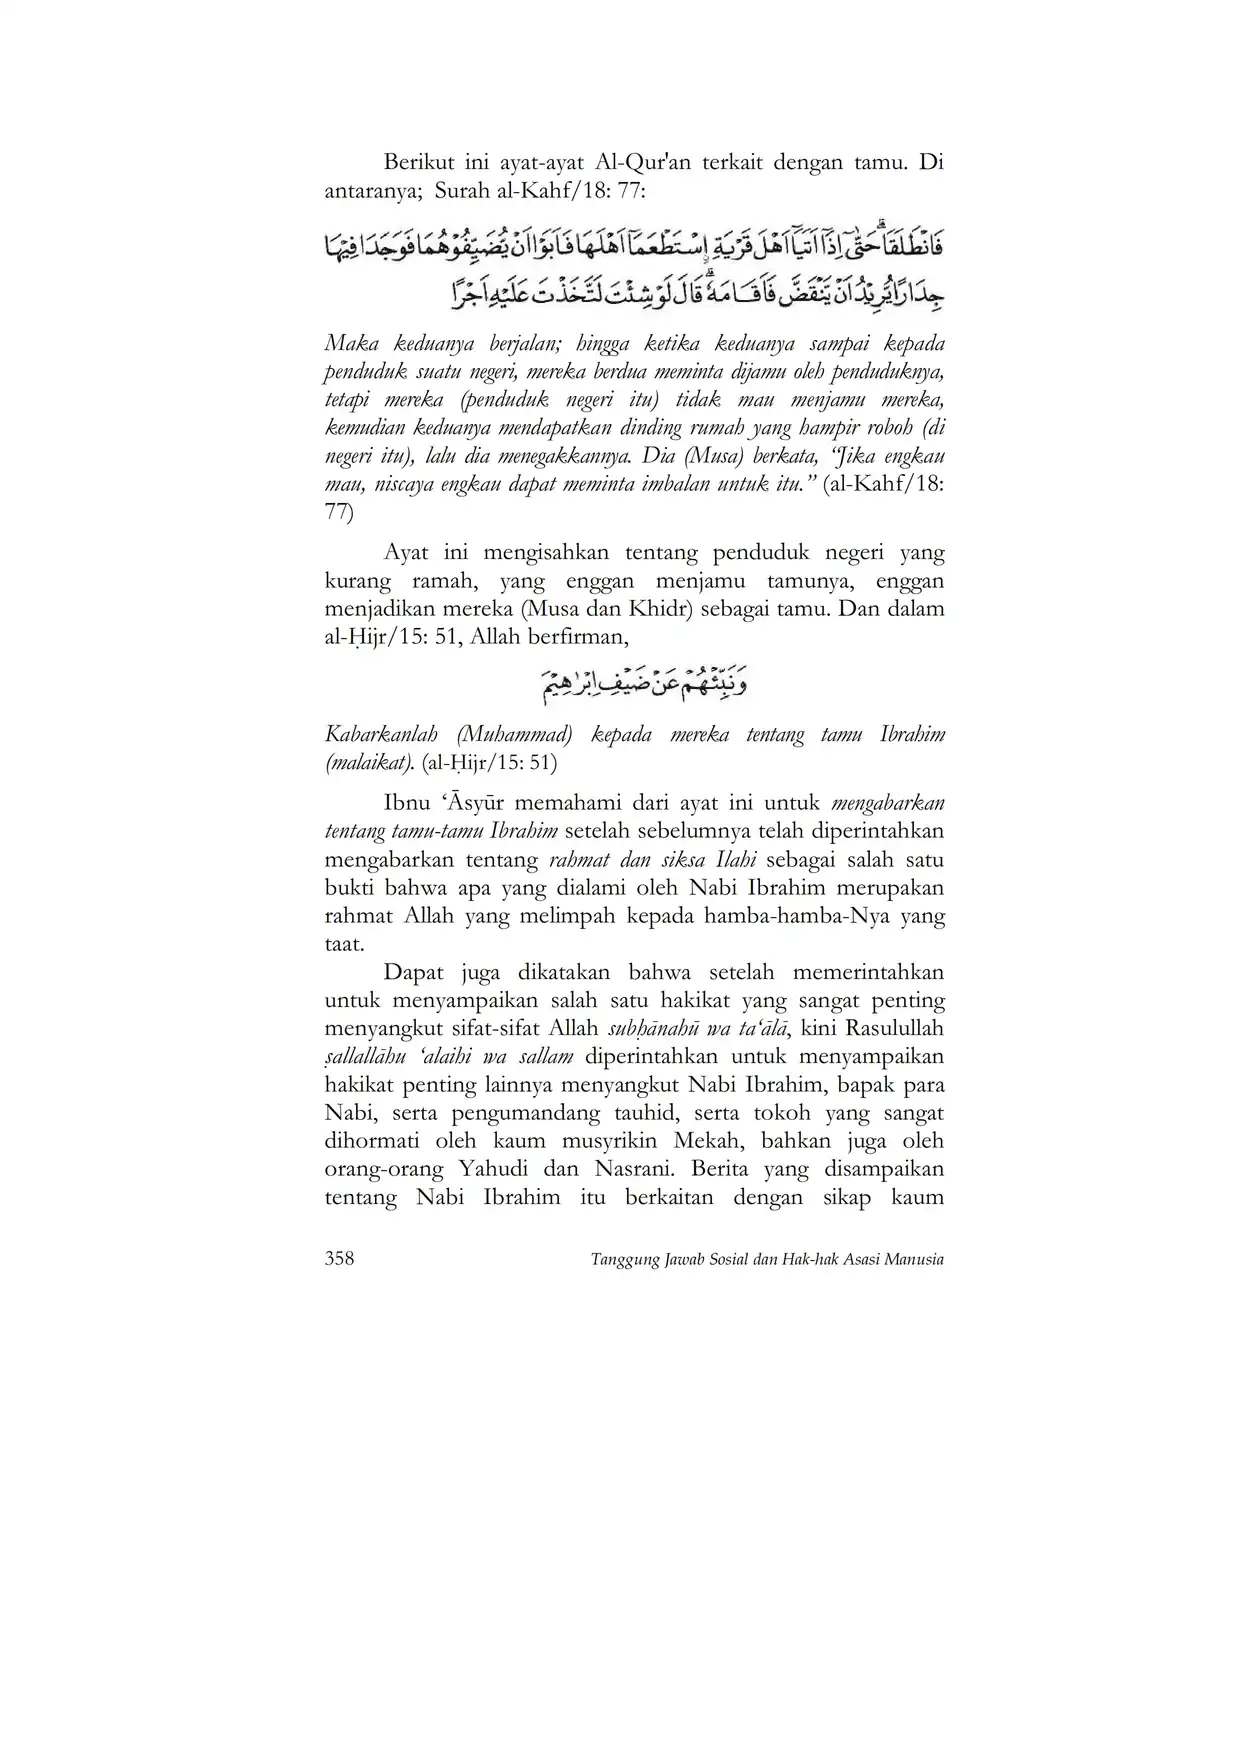 Berikut ini ayat-ayat Al-Qur'an terkait dengan tamu. Di
antaranya; Surah al-Kahf/18: 77:
فَانْطَلَقَاۗ حَتّٰىٓ اِذَآ اَتَيَآ اَهْلَ قَرْيَةِ ِۨاسْتَطْعَمَآ اَهْلَهَا فَاَبَوْا اَنْ يُّضَيِّفُوْهُمَا فَوَجَدَا فِيْهَا
جِدَارًا يُّرِيْدُ اَنْ يَّنْقَضَّ فَاَقَامَهٗۗ قَالَ لَوْ شِئْتَ لَتَّخَذْتَ عَلَيْهِ اَجْرًا
Maka keduanya berjalan; hingga ketika keduanya sampai kepada
penduduk suatu negeri, mereka berdua meminta dijamu oleh penduduknya,
tetapi mereka (penduduk negeri itu) tidak mau menjamu mereka,
kemudian keduanya mendapatkan dinding rumah yang hampir roboh (di
negeri itu), lalu dia menegakkannya. Dia (Musa) berkata, “Jika engkau
mau, niscaya engkau dapat meminta imbalan untuk itu.” (al-Kahf/18:
77)
Ayat ini mengisahkan tentang penduduk negeri yang
kurang ramah, yang enggan menjamu tamunya, enggan
menjadikan mereka (Musa dan Khidr) sebagai tamu. Dan dalam
al-Ḥijr/15: 51, Allah berfirman,
وَنَبِّئْهُمْ عَنْ ضَيْفِ اِبْرٰهِيْمَ
Kabarkanlah (Muhammad) kepada mereka tentang tamu Ibrahim
(malaikat). (al-Ḥijr/15: 51)
Ibnu ‘Āsyūr memahami dari ayat ini untuk mengabarkan
tentang tamu-tamu Ibrahim setelah sebelumnya telah diperintahkan
mengabarkan tentang rahmat dan siksa Ilahi sebagai salah satu
bukti bahwa apa yang dialami oleh Nabi Ibrahim merupakan
rahmat Allah yang melimpah kepada hamba-hamba-Nya yang
taat.
Dapat juga dikatakan bahwa setelah memerintahkan
untuk menyampaikan salah satu hakikat yang sangat penting
menyangkut sifat-sifat Allah subḥānahū wa ta‘ālā, kini Rasulullah
ṣallallāhu ‘alaihi wa sallam diperintahkan untuk menyampaikan
hakikat penting lainnya menyangkut Nabi Ibrahim, bapak para
Nabi, serta pengumandang tauhid, serta tokoh yang sangat
dihormati oleh kaum musyrikin Mekah, bahkan juga oleh
orang-orang Yahudi dan Nasrani. Berita yang disampaikan
tentang Nabi Ibrahim itu berkaitan dengan sikap kaum
358 Tanggung Jawab Sosial dan Hak-hak Asasi Manusia